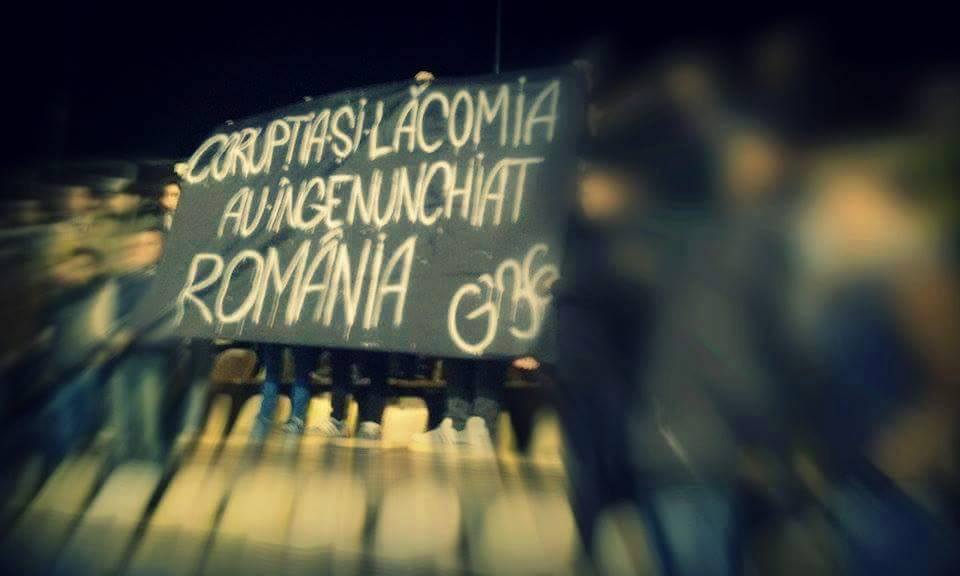 CORUPȚIA ȘI LĂCOMIA
AU ÎNGENUNCHIAT
ROMÂNIA